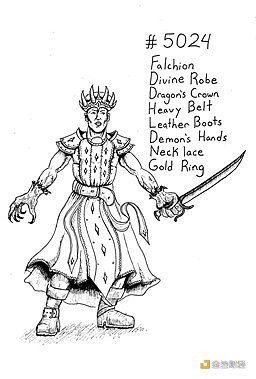 # 5024
Falchion
Divine Robe
Dragon's Crown
Heavy Belt
Leather Boots
Demon's Hands
Necklace
Gold Ring
金色财经